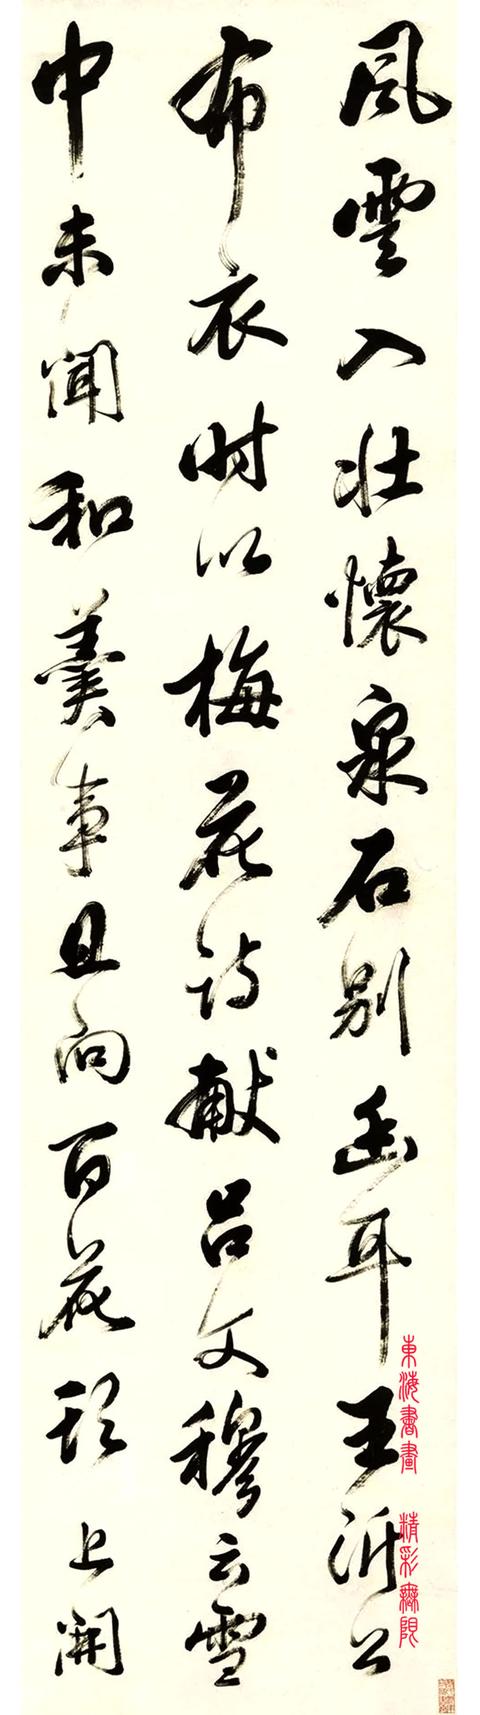 風雲入壮懷泉石别幽耳王沂公
布衣时以梅花诗献吕文穆云雪
中未闻和羹事且向百花头上開
東海書畫 精彩無限